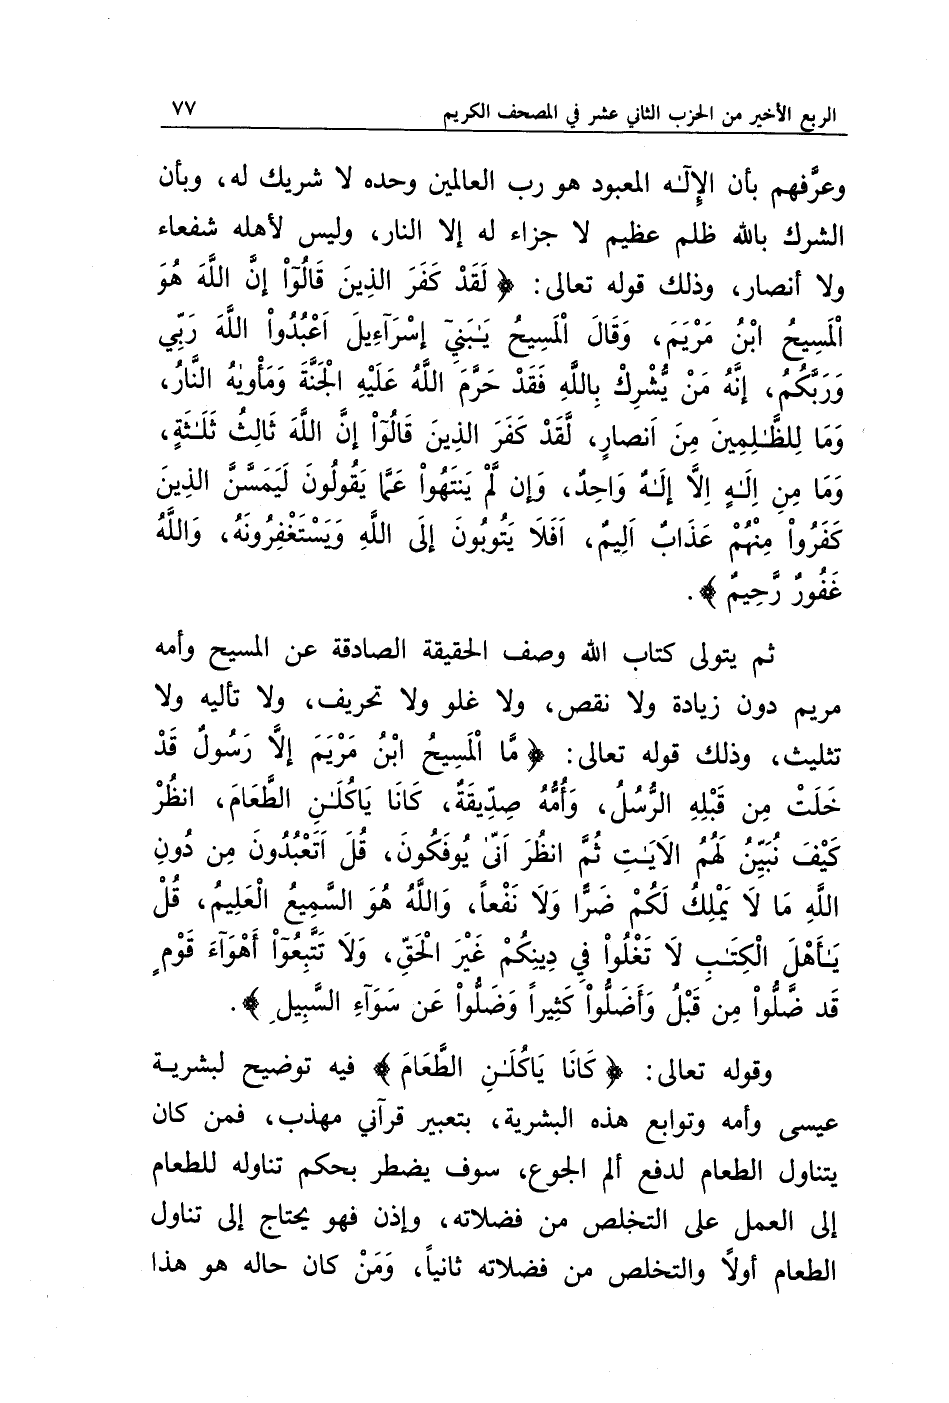 الربع الأخير من الحزب الثاني عشر في المصحف الكريم ٧٧
وعرَّفهم بأن الإِلَٰه المعبود هو رب العالمين وحده لا شريك له، وبأن
الشرك بالله ظلم عظيم لا جزاء له إلا النار، وليس لأهله شفعاء
ولا أنصار، وذلك قوله تعالى: ﴿ لَقَدْ كَفَرَ الذِينَ قَالُوٓاْ إنَّ اللَّهَ هُوَ
اْلَمَسِيحُ ابْنُ مَرْيَمَ، وَقَالَ اْلَمَسِيحُ يَـٰبَنِيٓ إسْرَآءِيلَ اَعْبُدُواْ اللَّهَ رَبِّي
وَرَبَّكُمُ، إنَّهُ مَنْ يُّشْرِكْ بِاللَّهِ فَقَدْ حَرَّمَ اللَّهُ عَلَيْهِ الْجَنَّةَ وَمَأْوٰيهُ النَّارُ،
وَمَا لِلظَّـٰلِمِينَ مِنَ اَنصارٍ، لَّقَدْ كَفَرَ الذِينَ قَالُوٓاْ إنَّ اللَّهَ ثَالِثُ ثَلَـٰثَةٍ،
وَمَا مِنِ اِلَـٰهٍ اِلَّا إلَـٰهٌ وَاحِدٌ، وَإن لَّمْ يَنتَهُواْ عَمَّا يَقُولُونَ لَيَمَسَّنَّ الذِينَ
كَفَرُواْ مِنْهُمْ عَذَابٌ اَلِيمٌ، اَفَلَا يَتُوبُونَ إلَى اللَّهِ وَيَسْتَغْفِرُونَهُ، وَاللَّهُ
غَفُورٌ رَّحِيمٌ ﴾.
ثم يتولى كتاب الله وصف الحقيقة الصادقة عن المسيح وأمه
مريم دون زيادة ولا نقص، ولا غلو ولا تحريف، ولا تأليه ولا
تثليث، وذلك قوله تعالى: ﴿ مَّا اْلَمَسِيحُ ابْنُ مَرْيَمَ إلَّا رَسُولٌ قَدْ
خَلَتْ مِن قَبْلِهِ الرُّسُلُ، وَأُمُّهُ صِدِّيقَةٌ، كَانَا يَاكُلَـٰنِ الطَّعَامَ، انظُرْ
كَيْفَ نُبَيِّنُ لَهُمُ الَايَـٰتِ ثُمَّ انظُرَ اَنّىٰ يُوفَكُونَ، قُلَ اَتَعْبُدُونَ مِن دُونِ
اللَّهِ مَا لَا يَمْلِكُ لَكُمْ ضَرًّا وَلَا نَفْعاً، وَاللَّهُ هُوَ السَّمِيعُ الْعَلِيمُ، قُلْ
يَـٰأَهْلَ الْكِتَـٰبِ لَا تَغْلُواْ فِي دِينِكُمْ غَيْرَ الْحَقِّ، وَلَا تَتَّبِعُوٓاْ أَهْوَآءَ قَوْمٍ
قَد ضَّلُّواْ مِن قَبْلُ وَأَضَلُّواْ كَثِيراً وَضَلُّواْ عَن سَوَآءِ السَّبِيلِ ﴾.
وقوله تعالى: ﴿ كَانَا يَاكُلَـٰنِ الطَّعَامَ ﴾ فيه توضيح لبشرية
عيسى وأمه وتوابع هذه البشرية، بتعبير قرآني مهذب، فمن كان
يتناول الطعام لدفع ألم الجوع، سوف يضطر بحكم تناوله للطعام
إلى العمل على التخلص من فضلاته، وإذن فهو يحتاج إلى تناول
الطعام أولاً والتخلص من فضلاته ثانياً، وَمَنْ كان حاله هو هذا